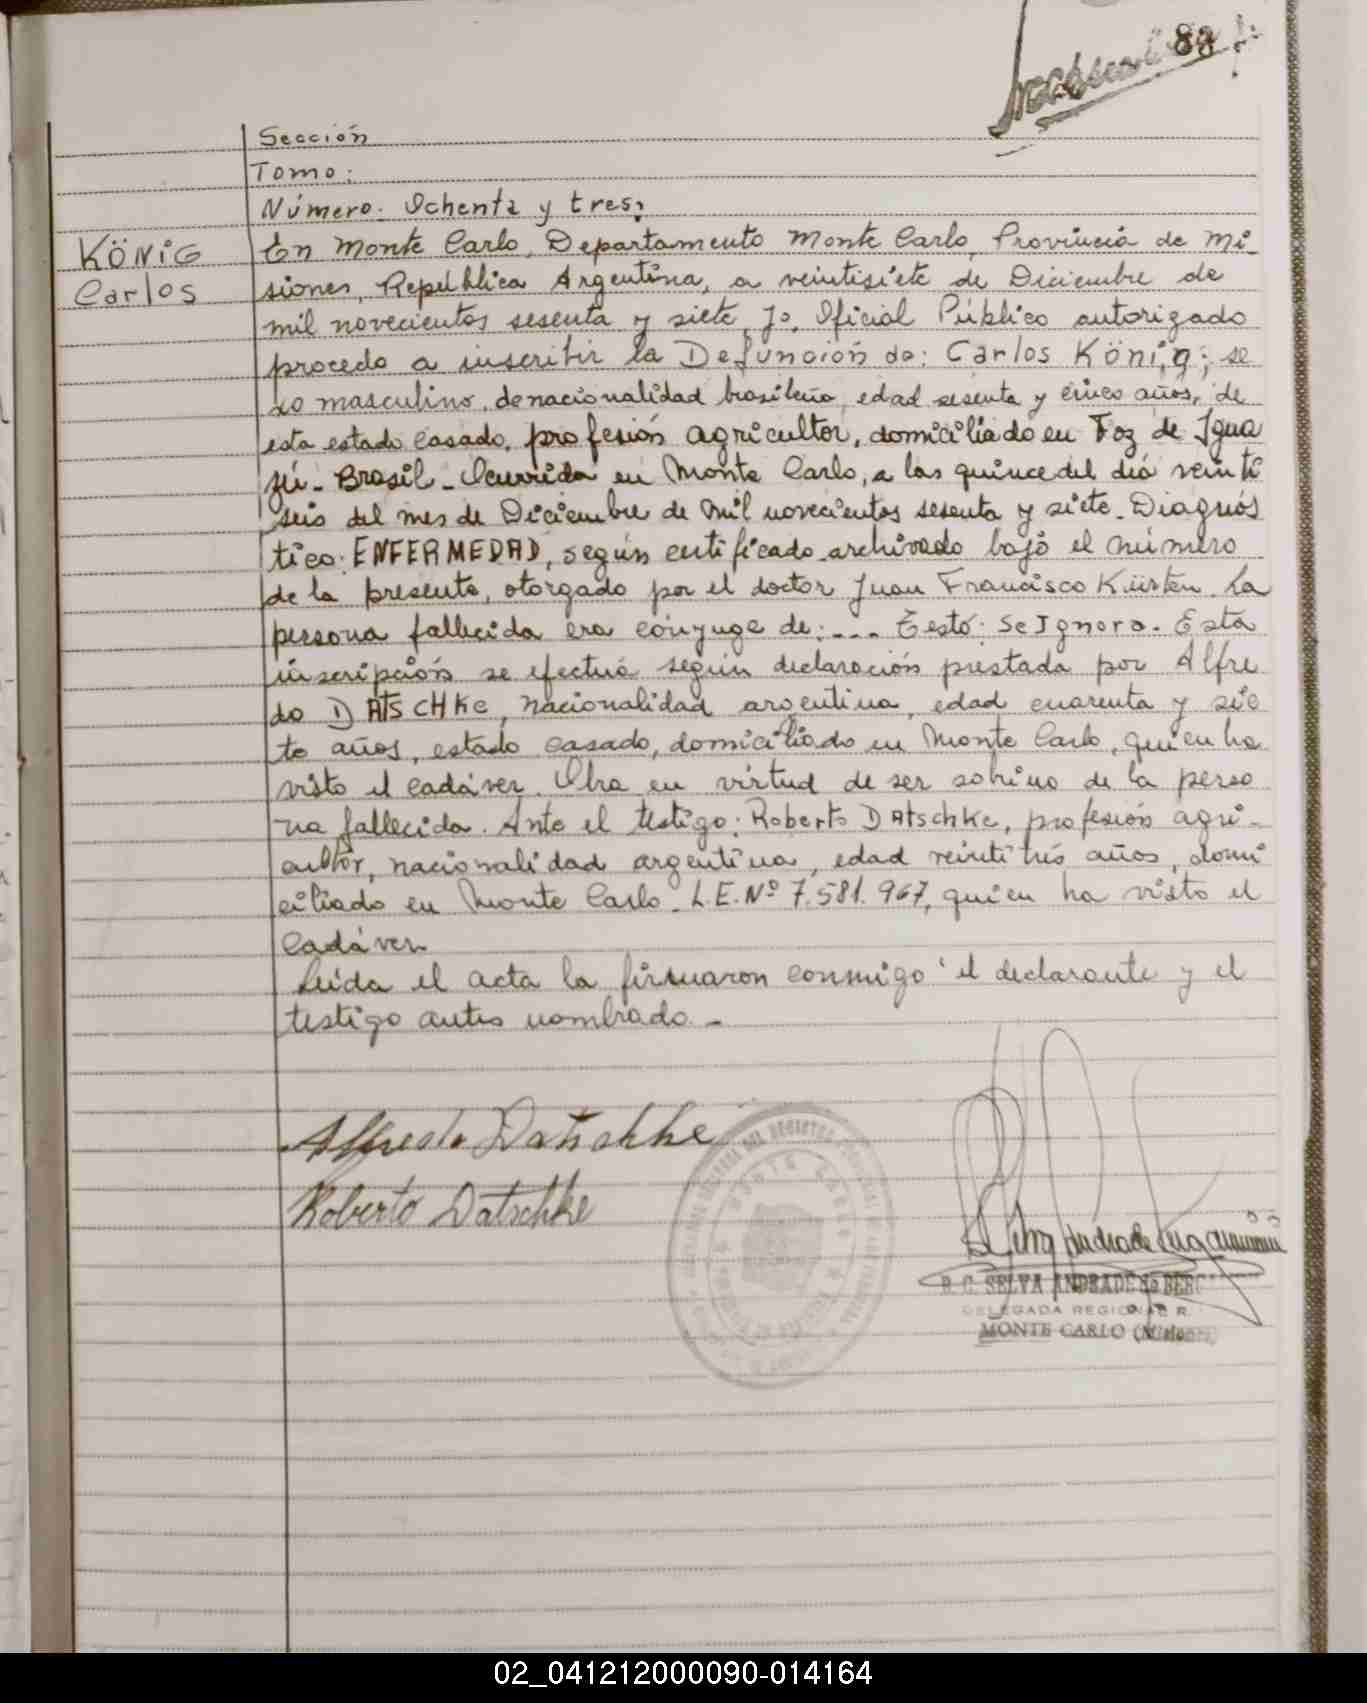 83
Sección
Tomo:
Número. Ochenta y tres.
KÖNiG
Carlos
En Monte Carlo, Departamento Monte Carlo, Provincia de Mi-
siones, República Argentina, a veintisiete de Diciembre de
mil novecientos sesenta y siete, yo, Oficial Público autorizado
procedo a inscribir la Defunción de: Carlos König; se
xo masculino, de nacionalidad brasileña, edad sesenta y cinco años, de
esta estado casado, profesión agricultor, domiciliado en Foz de Igua
zú - Brasil - Ocurrida en Monte Carlo, a las quince del día veinti
seis del mes de Diciembre de mil novecientos sesenta y siete. Diagnós
tico: ENFERMEDAD, según certificado archivado bajo el número
de la presente, otorgado por el doctor Juan Francisco Kürten. La
persona fallecida era cónyuge de: --- Testó: Se Ignora. Esta
inscripción se efectuá según declaración prestada por Alfre
do DATSCHKe, nacionalidad argentina, edad cuarenta y sie
te años, estado casado, domiciliado en Monte Carlo, quien ha
visto el cadáver. Obra en virtud de ser sobrino de la perso
na fallecida. Ante el testigo: Roberto DAtschke, profesión agri-
cultor, nacionalidad argentina, edad veintitrés años, domi
ciliado en Monte Carlo. L.E. Nº 7.581.967, quien ha visto el
Cadáver.
Leída el acta la firmaron conmigo el declarante y el
testigo antes nombrado. -
Alfredo Datschke
Roberto Datschke
B. C. SELVA ANDRADE de BERG
DELEGADA REGIONAL R.
MONTE CARLO (Misiones)
02_041212000090-014164